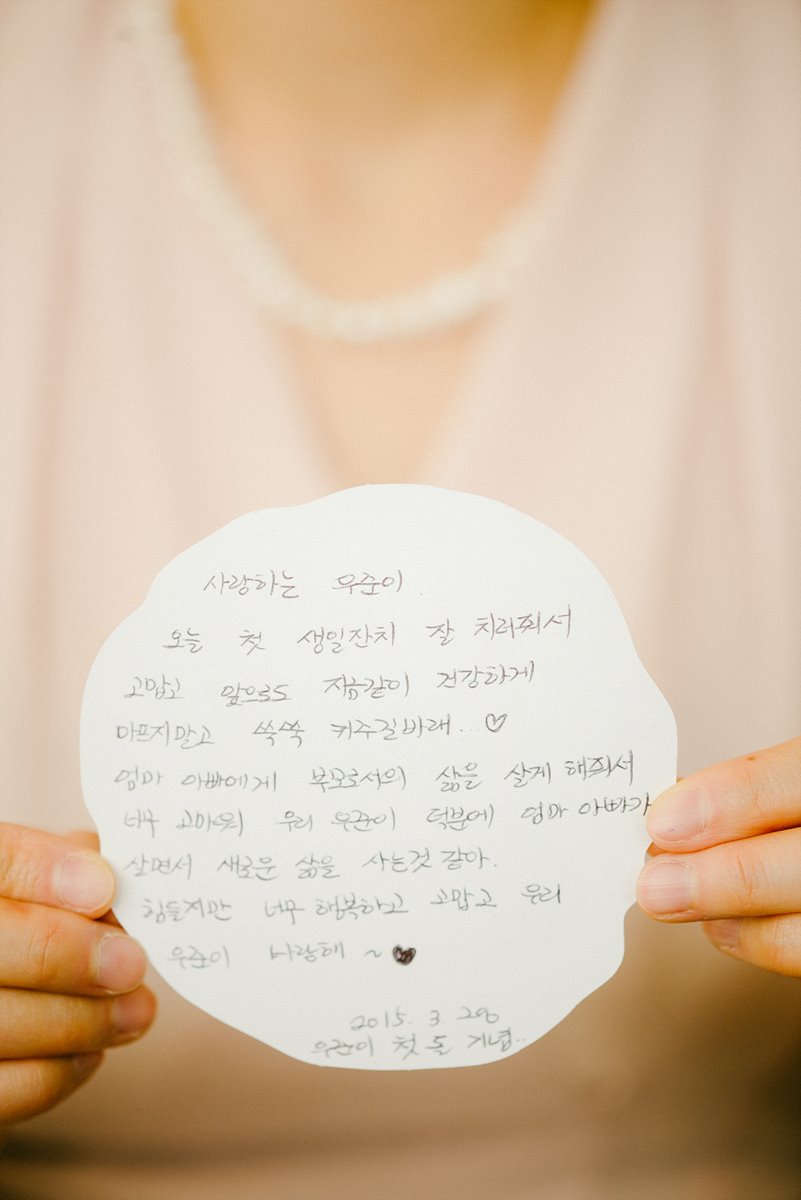 사랑하는 우준이
오늘 첫 생일잔치 잘 치러줘서
고맙고 앞으로도 지금같이 건강하게
아프지말고 쑥쑥 커주길바래.. ♡
엄마 아빠에게 부모로서의 삶을 살게 해줘서
너무 고마워 우리 우준이 덕분에 엄마 아빠가
살면서 새로운 삶을 사는것 같아.
힘들지만 너무 행복하고 고맙고 우리
우준이 사랑해 ~ ♥
2015. 3
우준이 첫 돌 기념..